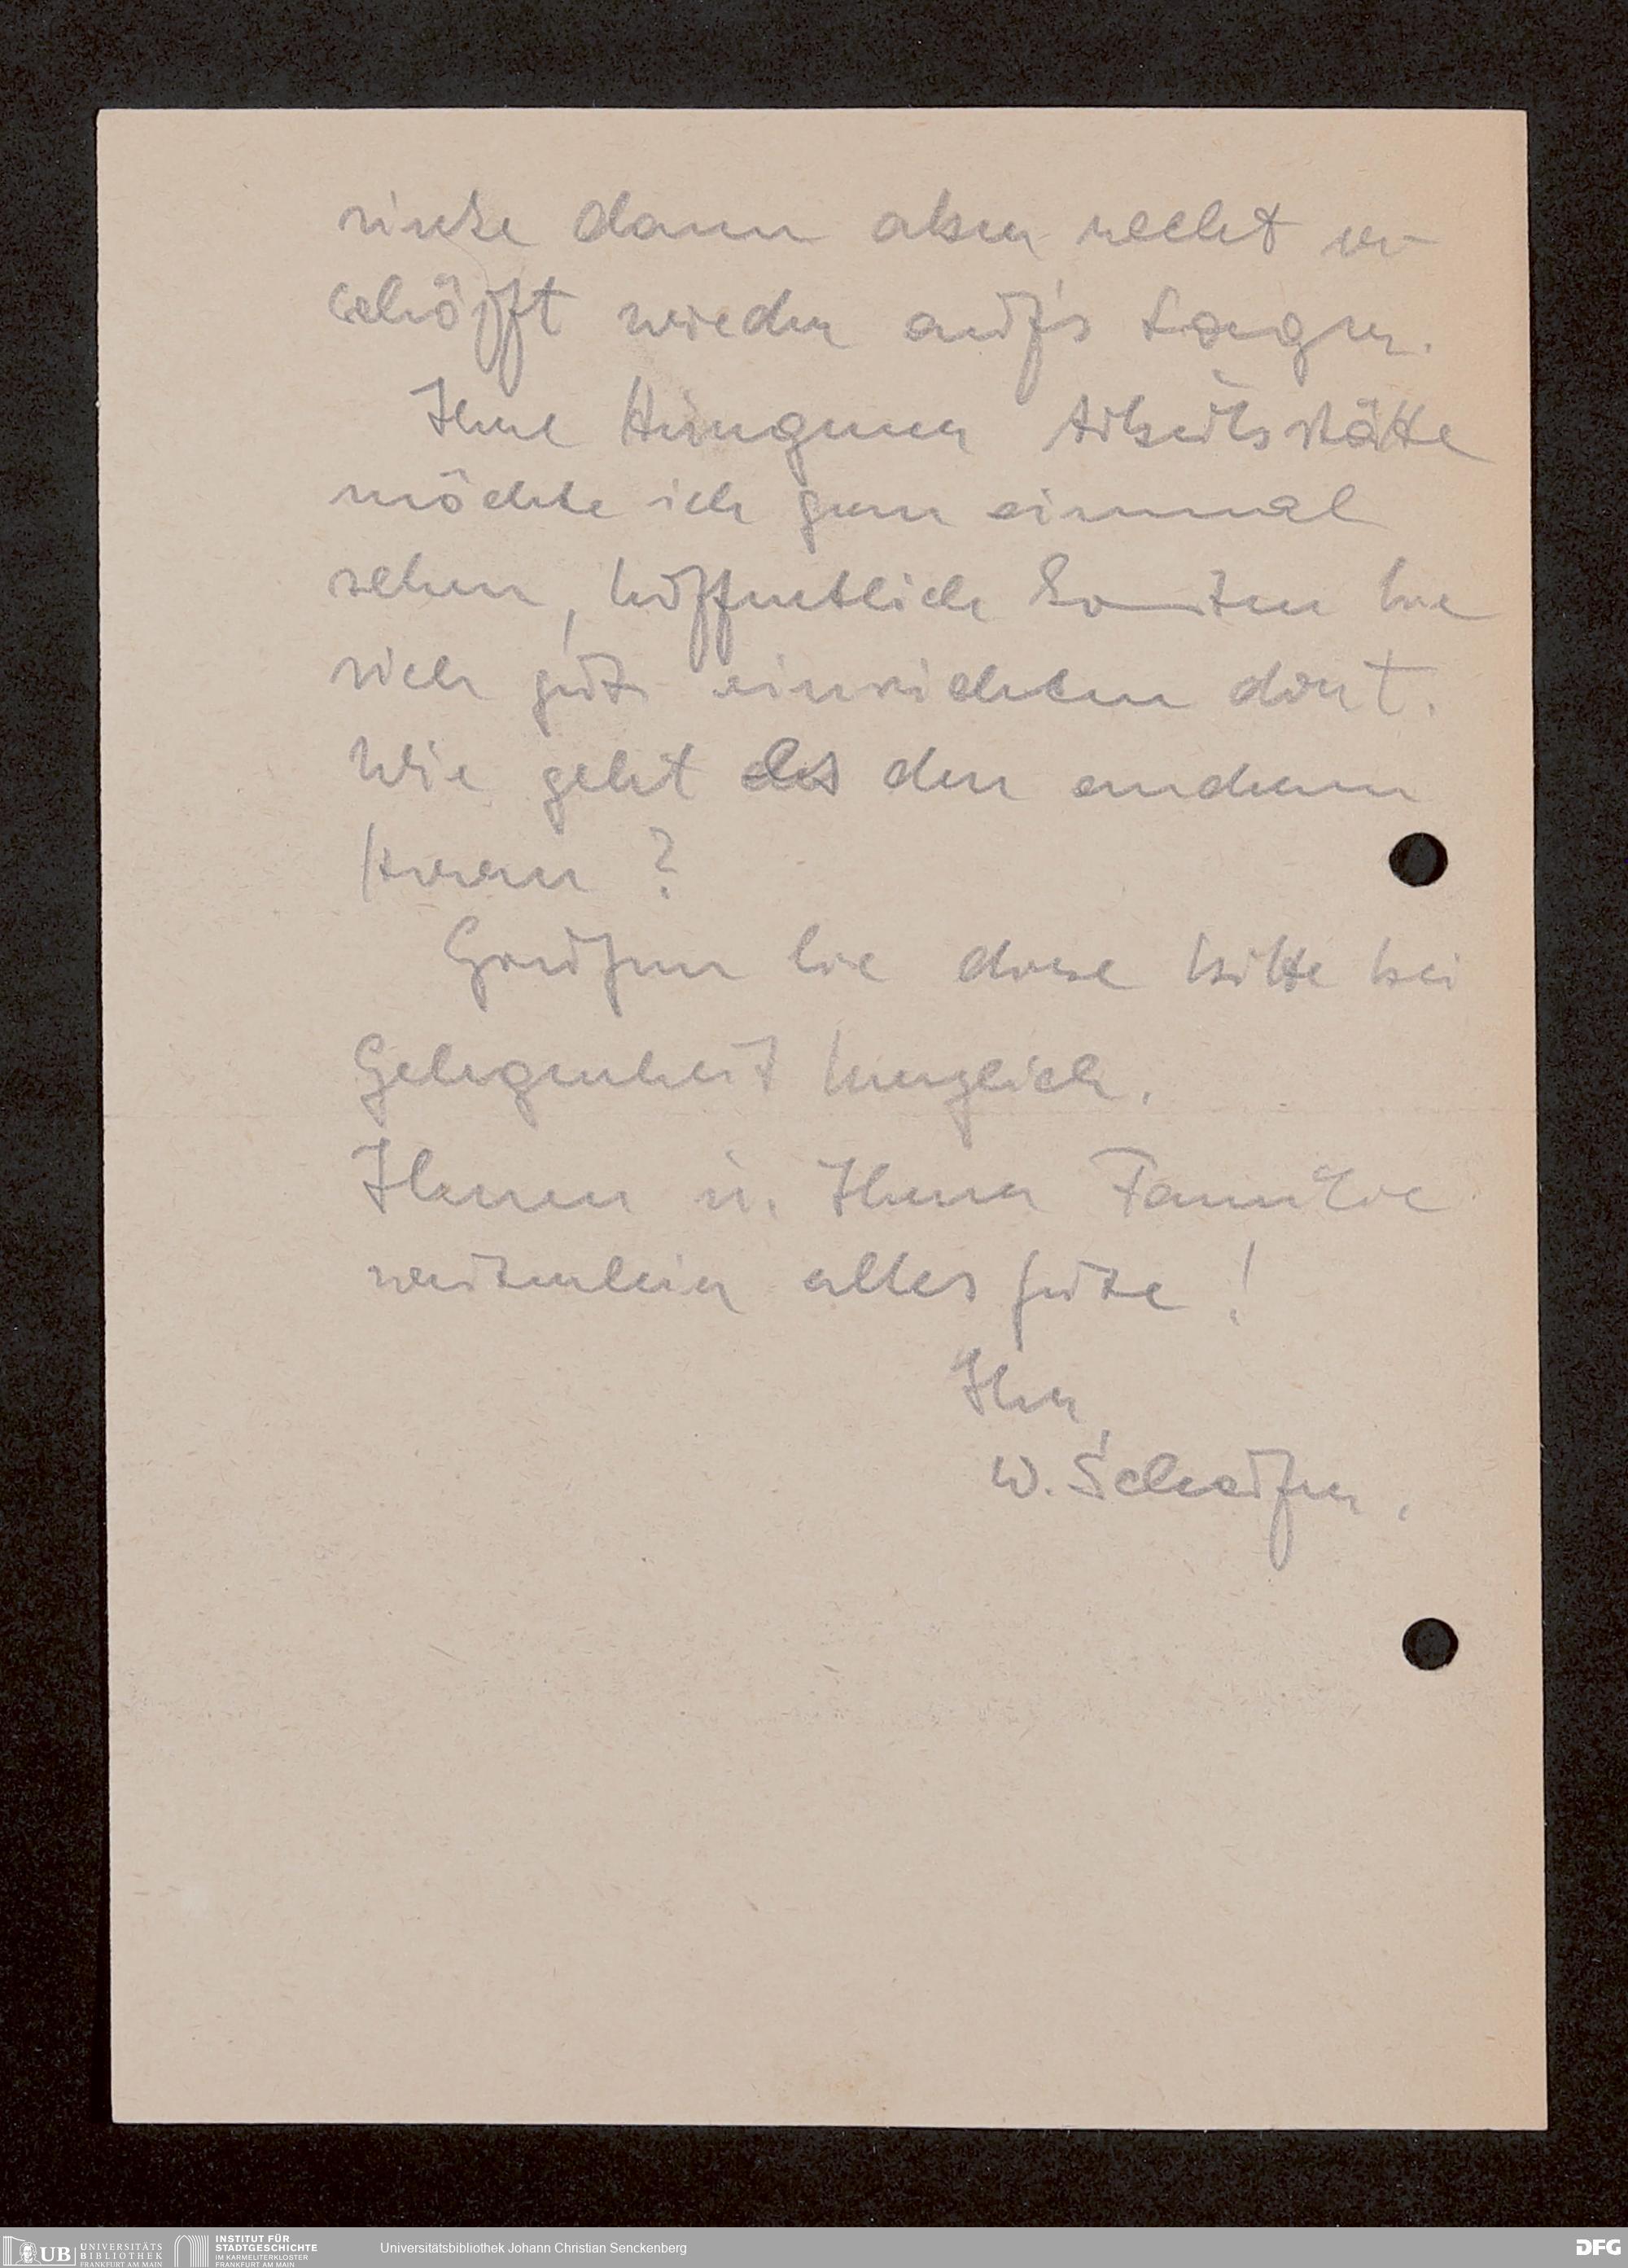 sinke dann aber recht er-
schöpft wieder auf's Lager.
Ihre Hungener Arbeitsstätte
möchte ich gern einmal
sehen, hoffentlich konnten Sie
sich gut einrichten dort.
Wie geht es den anderen
Herren?
Grüßen Sie diese bitte bei
Gelegenheit herzlich.
Ihnen u. Ihrer Familie
weiterhin alles Gute!
Ihr
W. Schäfer.
UB UNIVERSITÄTS
BIBLIOTHEK
FRANKFURT AM MAIN
INSTITUT FÜR
STADTGESCHICHTE
IM KARMELITERKLOSTER
FRANKFURT AM MAIN
Universitätsbibliothek Johann Christian Senckenberg
DFG